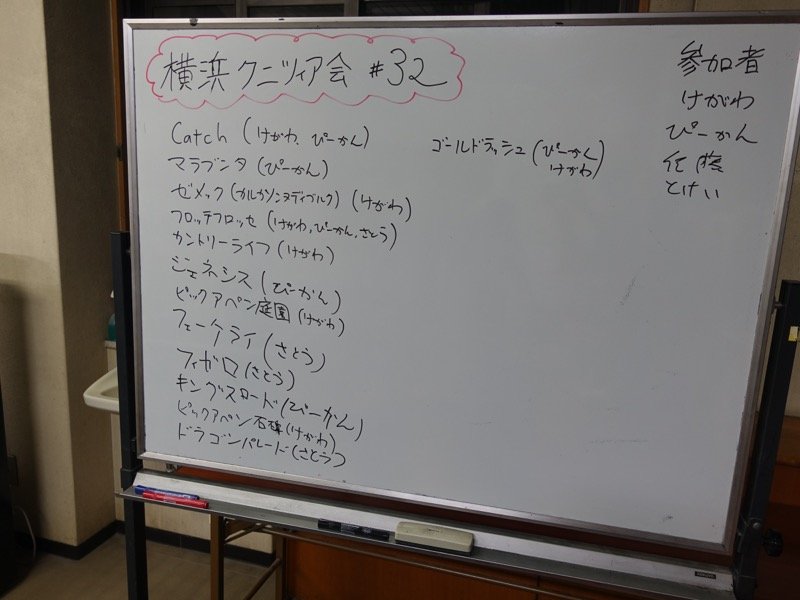 横浜クニツィア会 #32
Catch (けがわ、ぴーかん)
マラブンタ (ぴーかん)
ゼメック (カルカソンヌディブルク) (けがわ)
フロッテフロッセ (けがわ,ぴーかん,さとう)
カントリーライフ (けがわ)
ジェネシス (ぴーかん)
ピックアペン庭園 (けがわ)
フェーケライ (さとう)
フィガロ (さとう)
キングスロード (ぴーかん)
ピックアペン石棺 (けがわ)
ドラゴンパレード (さとう)
ゴールドラッシュ (ぴーかん
けがわ)
参加者
けがわ
ぴーかん
佐藤
とけい